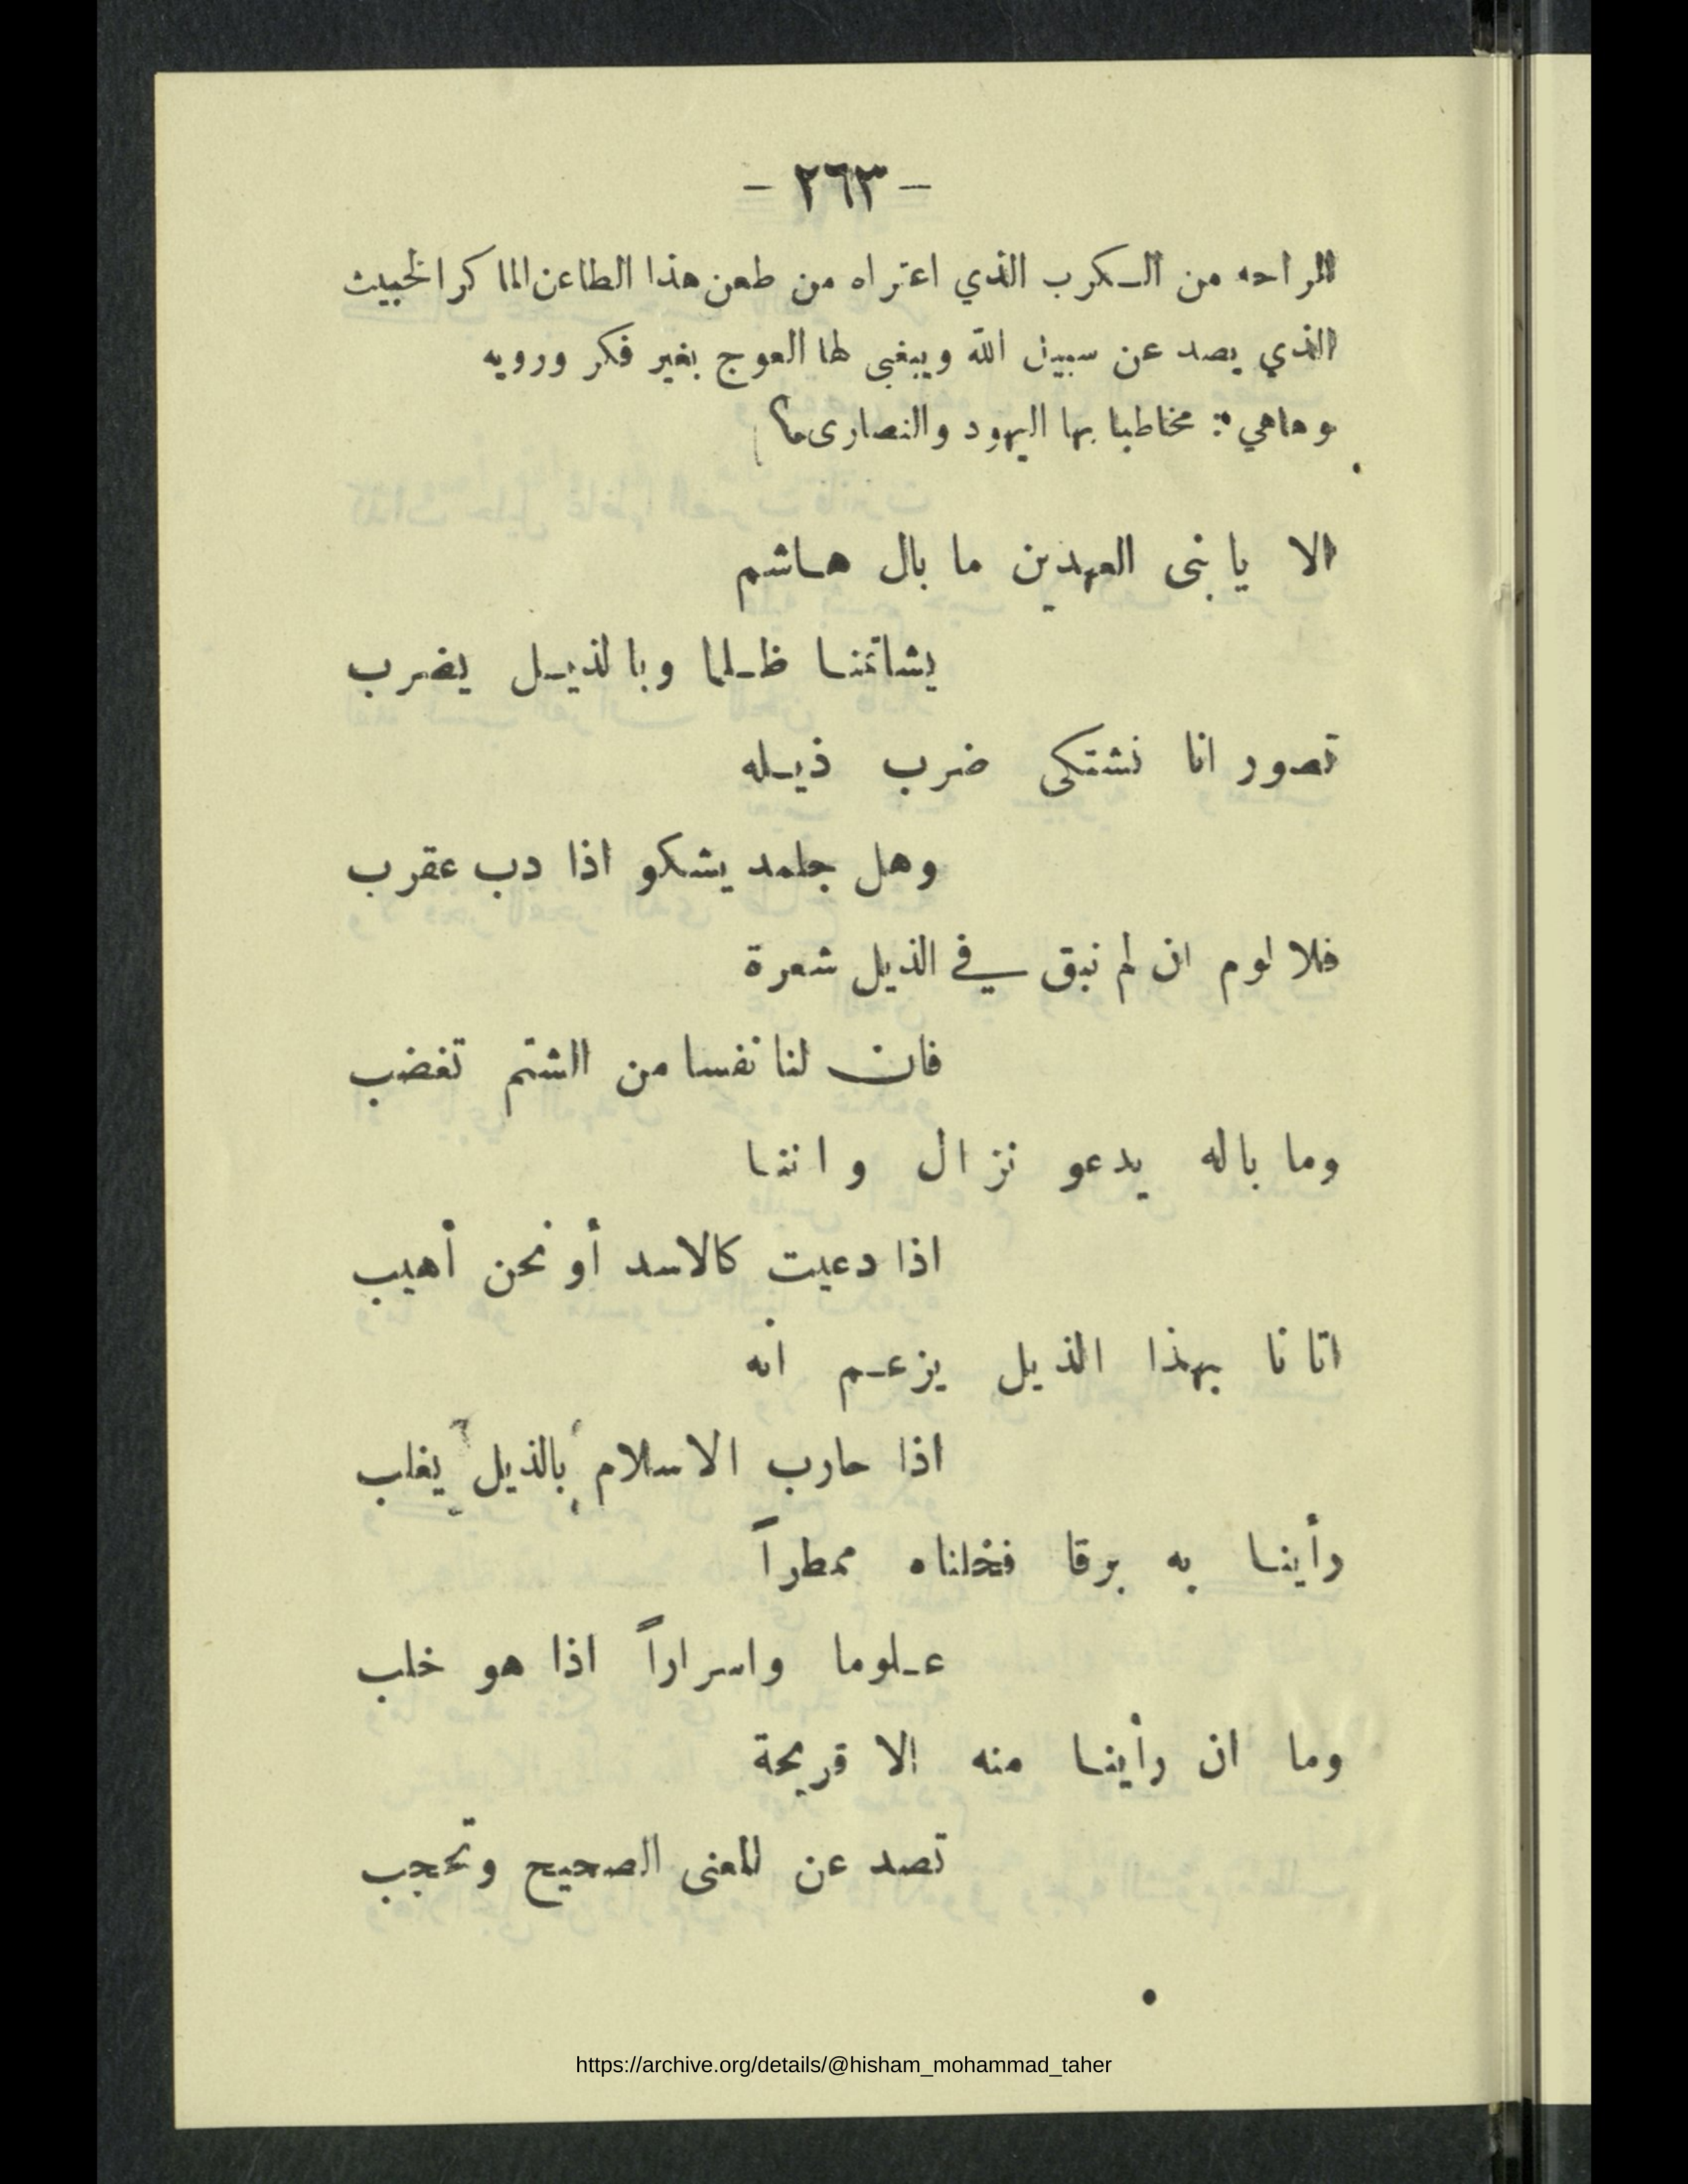 - ٢٦٣ -
الراحه من الـكرب الذي اعتراه من طعن هذا الطاعن الماكر الخبيث
الذي يصد عن سبيل الله ويبغى لها العوج بغير فكر ورويه
وهاهي : مخاطبا بها اليهود والنصارى
الا يا بنى العهدين ما بال هـاشم
يشاتمنـا ظـلما وبالذيـل يضرب
تصور انا نشتكى ضرب ذيـله
وهل جلمد يشكو اذا دب عقرب
فلا لوم ان لم نبق في الذيل شعرة
فان لنا نفسا من الشتم تغضب
وما باله يدعو نزال واننـا
اذا دعيت كالاسد أو نحن أهيب
اتانا بهذا الذيل يزعـم انه
اذا حارب الاسلام بالذيل يغلب
رأينـا به برقا فخلناه ممطراً
عـلوما واسراراً اذا هو خلب
وما ان رأينـا منه الا قريحة
تصد عن المعنى الصحيح وتحجب
https://archive.org/details/@hisham_mohammad_taher